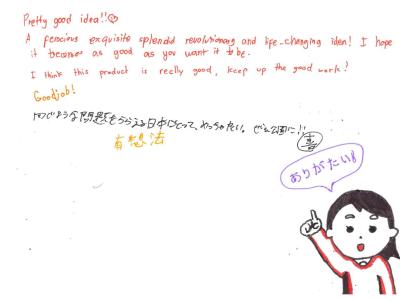 Pretty good idea!!♡
A ferocious exquisite splendid revolutionary and life-changing idea! I hope
it becomes as good as you want it to be.
I think this product is really good, keep up the good work!
Good job!
問題 日本にとって、
有想法
ありがたい!